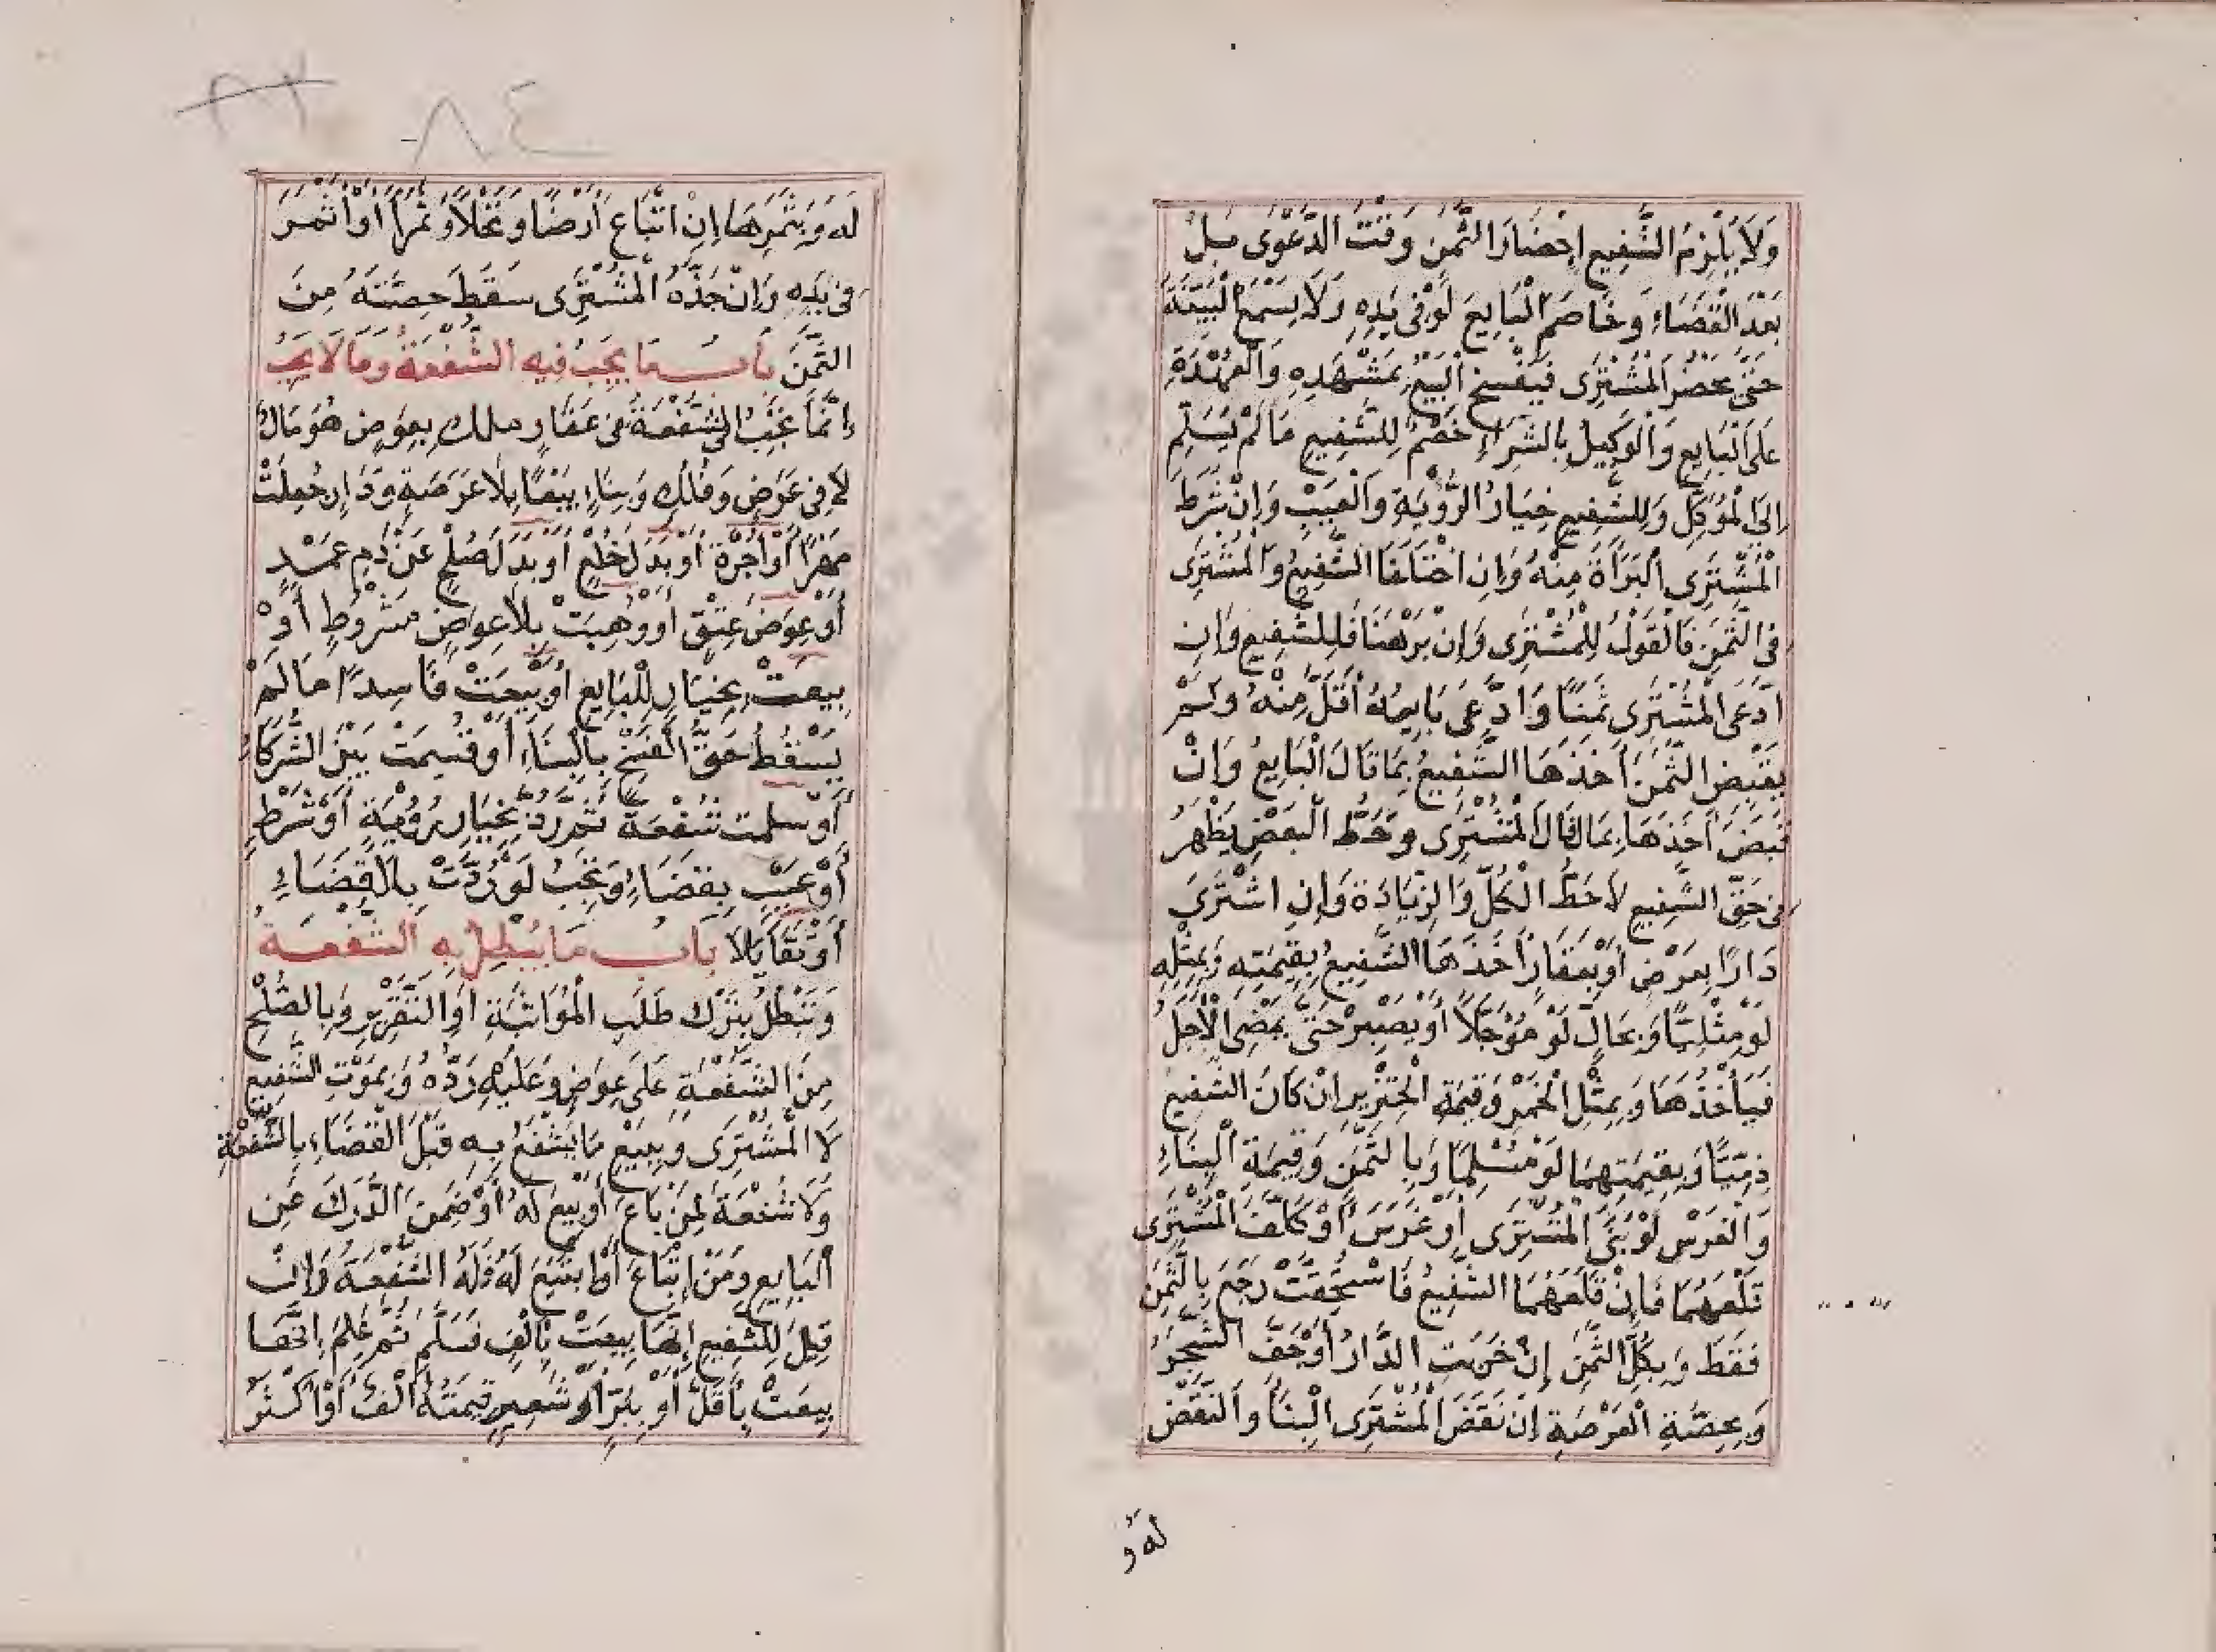 وَلَا يَلْزِمُ الشَّفِيعَ إِحْضَارُ الثَّمَنِ وَقْتَ الدَّعْوَى بَلْ
بَعْدَ الْقَضَاءِ وَخَاصَمَ الْبَايِعَ لَوْ فِى يَدِهِ وَلَا يَسْمَعُ الْبَيِّنَةَ
حَتَّى يَحْضُرَ الْمُشْتَرِى فَيَفْسَخُ الْبَيْعَ بِمَشْهَدِهِ وَالْعُهْدَةِ
عَلَى الْبَايِعِ وَالْوَكِيلُ بِالشِّرَاءِ خَصْمٌ لِلشَّفِيعِ مَا لَمْ يُسَلِّمْ
إِلَى الْمُوَكِّلِ وَلِلشَّفِيعِ خِيَارُ الرُّؤْيَةِ وَالْعَيْبِ وَإِنْ شَرَطَ
الْمُشْتَرِى الْبَرَأَةَ مِنْهُ وَإِنِ اخْتَلَفَا الشَّفِيعُ وَالْمُشْتَرِى
فِى الثَّمَنِ فَالْقَوْلُ لِلْمُشْتَرِى وَإِنْ بَرْهَنَا فَلِلشَّفِيعِ وَإِنِ
ادَّعَى الْمُشْتَرِى ثَمَنًا وَادَّعَى بَايِعُهُ أَقَلَّ مِنْهُ وَلَمْ
يَقْبِضِ الثَّمَنَ أَخَذَهَا الشَّفِيعُ بِمَا قَالَ الْبَايِعُ وَإِنْ
قَبَضَ أَخَذَهَا بِمَا قَالَ الْمُشْتَرِى وَحَطُّ الْبَعْضِ يَظْهَرُ
فِى حَقِّ الشَّفِيعِ لَا حَطُّ الْكُلِّ وَالزِّيَادَةَ وَإِنِ اشْتَرَى
دَارًا بِعَرْضٍ أَوْ بِعَقَارٍ أَخَذَهَا الشَّفِيعُ بِقِيمَتِهِ وَبِمِثْلِهِ
لَوْ مِثْلِيًّا وَبِحَالٍّ لَوْ مُؤَجَّلًا أَوْ يَصْبِرْ حَتَّى يَمْضِىَ الْأَجَلُ
فَيَأْخُذُهَا وَبِمِثْلِ الْخَمْرِ وَقِيمَةِ الْخِنْزِيرِ إِنْ كَانَ الشَّفِيعُ
ذِمِّيًّا وَبِقِيمَتِهِمَا لَوْ مُسْلِمًا وَبِالثَّمَنِ وَقِيمَةِ الْبِنَاءِ
وَالْغَرْسِ لَوْ بَنَى الْمُشْتَرِى أَوْ غَرَسَ أَوْ كَلَّفَ الْمُشْتَرِى
قَلْعَهُمَا فَإِنْ قَلَعَهُمَا الشَّفِيعُ فَاسْتُحِقَّتْ رَجَعَ بِالثَّمَنِ
فَقَطْ وَبِكُلِّ الثَّمَنِ إِنْ خَرِبَتِ الدَّارُ أَوْ جَفَّ الشَّجَرُ
وَبِحِصَّةِ الْعَرْصَةِ إِنْ نَقَضَ الْمُشْتَرِى الْبِنَأَ وَالنَّقْضُ
لَهُ وَ
٨٤
لَهُ وَبِثَمَرِهَا إِنِ ابْتَاعَ أَرْضًا وَنَخْلًا وَثَمَرًا أَوْ أَثْمَرَ
فِى يَدِهِ وَإِنْ جَذَّهُ الْمُشْتَرِى سَقَطَ حِصَّتَهُ مِنَ
الثَّمَنِ بَابُ مَا يَجِبُ فِيهِ الشُّفْعَةُ وَمَا لَا يَجِبُ
إِنَّمَا تَجِبُ الشُّفْعَةُ فِى عَقَارٍ مِلْكٍ بِعِوَضٍ هُوَ مَالٌ
لَا فِى عَرَضٍ وَفُلْكٍ وَبِنَاءٍ بِيْعًا بِلَا عَرَصَةٍ وَدَارٍ جُعِلَتْ
مَهْرًا أَوْ أُجْرَةً أَوْ بَدَلَ خُلْعٍ أَوْ بَدَلَ صُلْحٍ عَنْ دَمِ عَمْدٍ
أَوْ عِوَضَ عِتْقٍ أَوْ وُهِبَتْ بِلَا عِوَضٍ مَشْرُوطٍ أَوْ
بِيعَتْ بِخِيَارٍ لِلْبَايِعِ أَوْ بِيعَتْ فَاسِدًا مَا لَمْ
يَسْقُطْ حَقُّ الْفَسْخِ بِالْبِنَاءِ أَوْ قُسِمَتْ بَيْنَ الشُّرَكَاءِ
أَوْ سلمت شُفْعَةٌ ثُمَّ رُدَّ بِخِيَارِ رُؤْيَةٍ أَوْ شَرْطٍ
أَوْ عَيْبٍ بِقَضَاءٍ وَتَجِبُ لَوْ رُدَّتْ بِلَا قَضَاءٍ
أَوْ تَقَايَلَا بَابُ مَا يُبْطِلُ بِهِ الشُّفْعَةَ
وَتَبْطُلُ بِتَرْكِ طَلَبِ الْمُوَاثَبَةِ أَوِ التَّقْرِيرِ وَبِالصُّلْحِ
مِنَ الشُّفْعَةِ عَلَى عِوَضٍ وَعَلَيْهِ رَدُّهُ وَبِمَوْتِ الشَّفِيعِ
لَا الْمُشْتَرِى وَبِبَيْعِ مَا يَشْفَعُ بِهِ قَبْلَ الْقَضَاءِ بِالشُّفْعَةِ
وَلَا شُفْعَةَ لِمَنْ بَاعَ أَوْ بِيْعَ لَهُ أَوْ ضَمِنَ الدَّرَكَ عَنِ
الْبَايِعِ وَمَنْ ابْتَاعَ أَوِ ابْتِيعَ لَهُ فَلَهُ الشُّفْعَةَ وَإِنْ
قِيلَ لِلشَّفِيعِ إِنَّهَا بِيعَتْ بِأَلْفٍ فَسَلَّمَ ثُمَّ عُلِمَ إِنَّهَا
بِيعَتْ بِأَقَلَّ أَوْ بِبُرٍّ أَوْ شَعِيرٍ قِيمَتُهُ أَلْفٌ أَوْ أَكْثَرُ